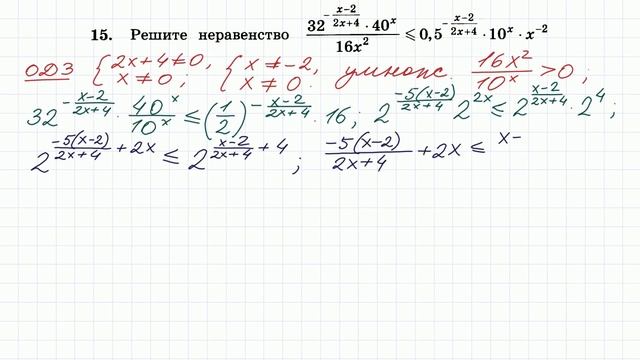 15. Решите неравенство (32^(-(x-2)/(2x+4)) · 40^x)/(16x²) ⩽ 0,5^(-(x-2)/(2x+4)) · 10^x · x^(-2)
ОДЗ { 2x+4≠0, x≠0; { x≠-2, x≠0. умнож. 16x²/10^x > 0;
32^(-(x-2)/(2x+4)) · 40^x/10^x ≤ (1/2)^(-(x-2)/(2x+4)) · 16; 2^(-5(x-2)/(2x+4)) 2^(2x) ≤ 2^((x-2)/(2x+4)) · 2^4;
2^(-5(x-2)/(2x+4) + 2x) ≤ 2^((x-2)/(2x+4) + 4); -5(x-2)/(2x+4) + 2x ≤ x-